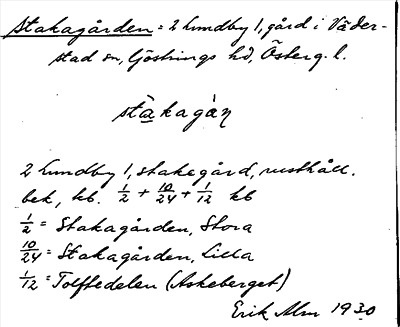 Stakagården = 2 Lundby 1, gård i Väder-
stad sn, Göstrings hd, Österg. l.
stakagån
2 Lundby 1, stakegård, rusthåll.
bek, kb. 1/2 + 10/24 + 1/12 kb
1/2 = Stakagården, Stora
10/24 = Stakagården, Lilla
1/12 = Tolftedelen (Askeberget)
Erik Alm 1930